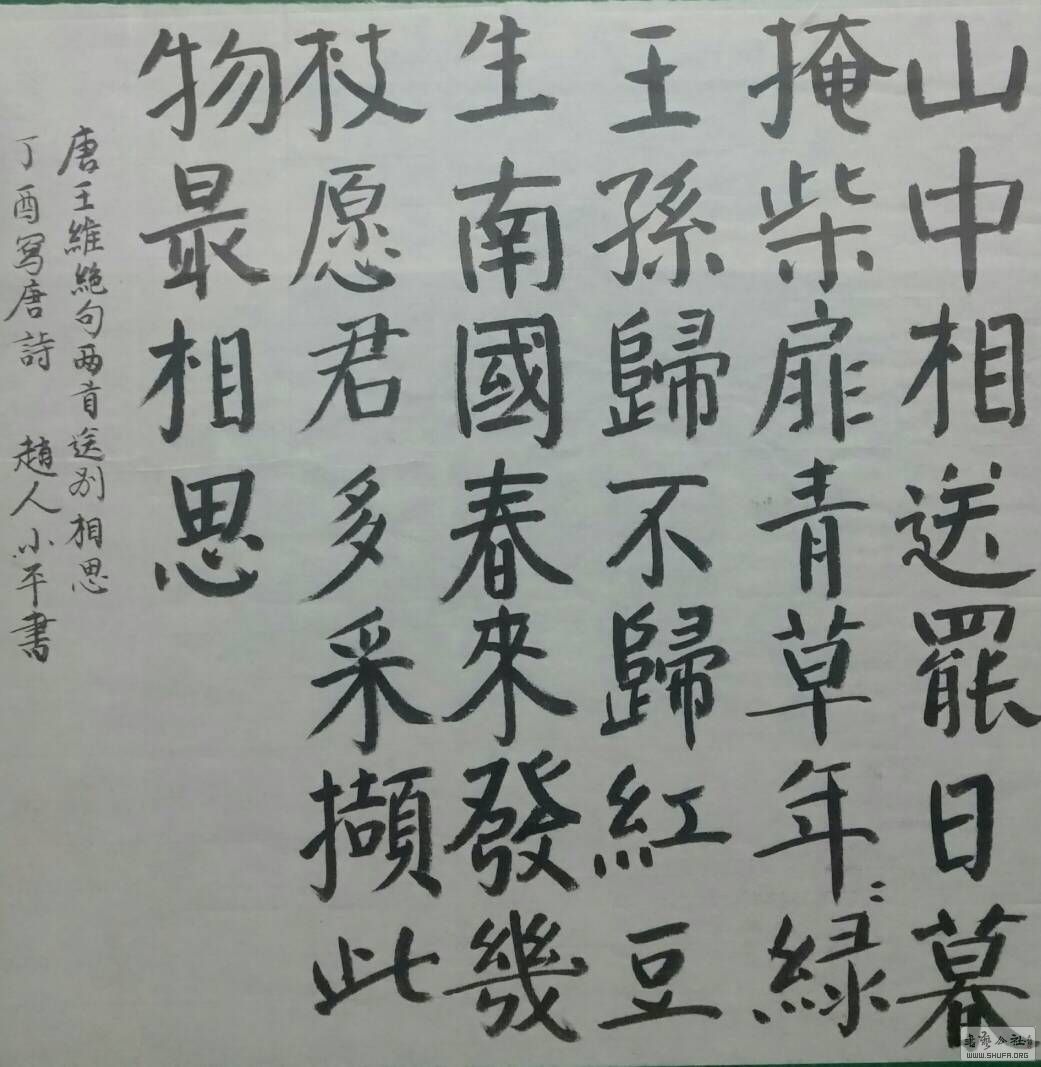 山中相送罷日暮
掩柴扉青草年〻綠
王孫歸不歸紅豆
生南國春來發幾
枝愿君多采擷此
物最相思
唐王維絕句兩首送別相思
丁酉寫唐詩 趙人小平書
WWW.SHUFA.ORG